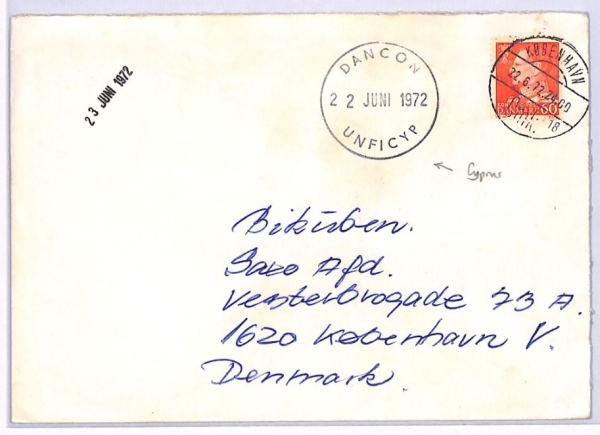 23 JUNI 1972
DANCON
22 JUNI 1972
UNFICYP
KØBENHAVN
22.6.72.24-00
OMK. 18
DANMARK 60
Cyprus
Bikuben.
Saxo Afd.
Vesterbrogade 73 A.
1620 København V.
Denmark